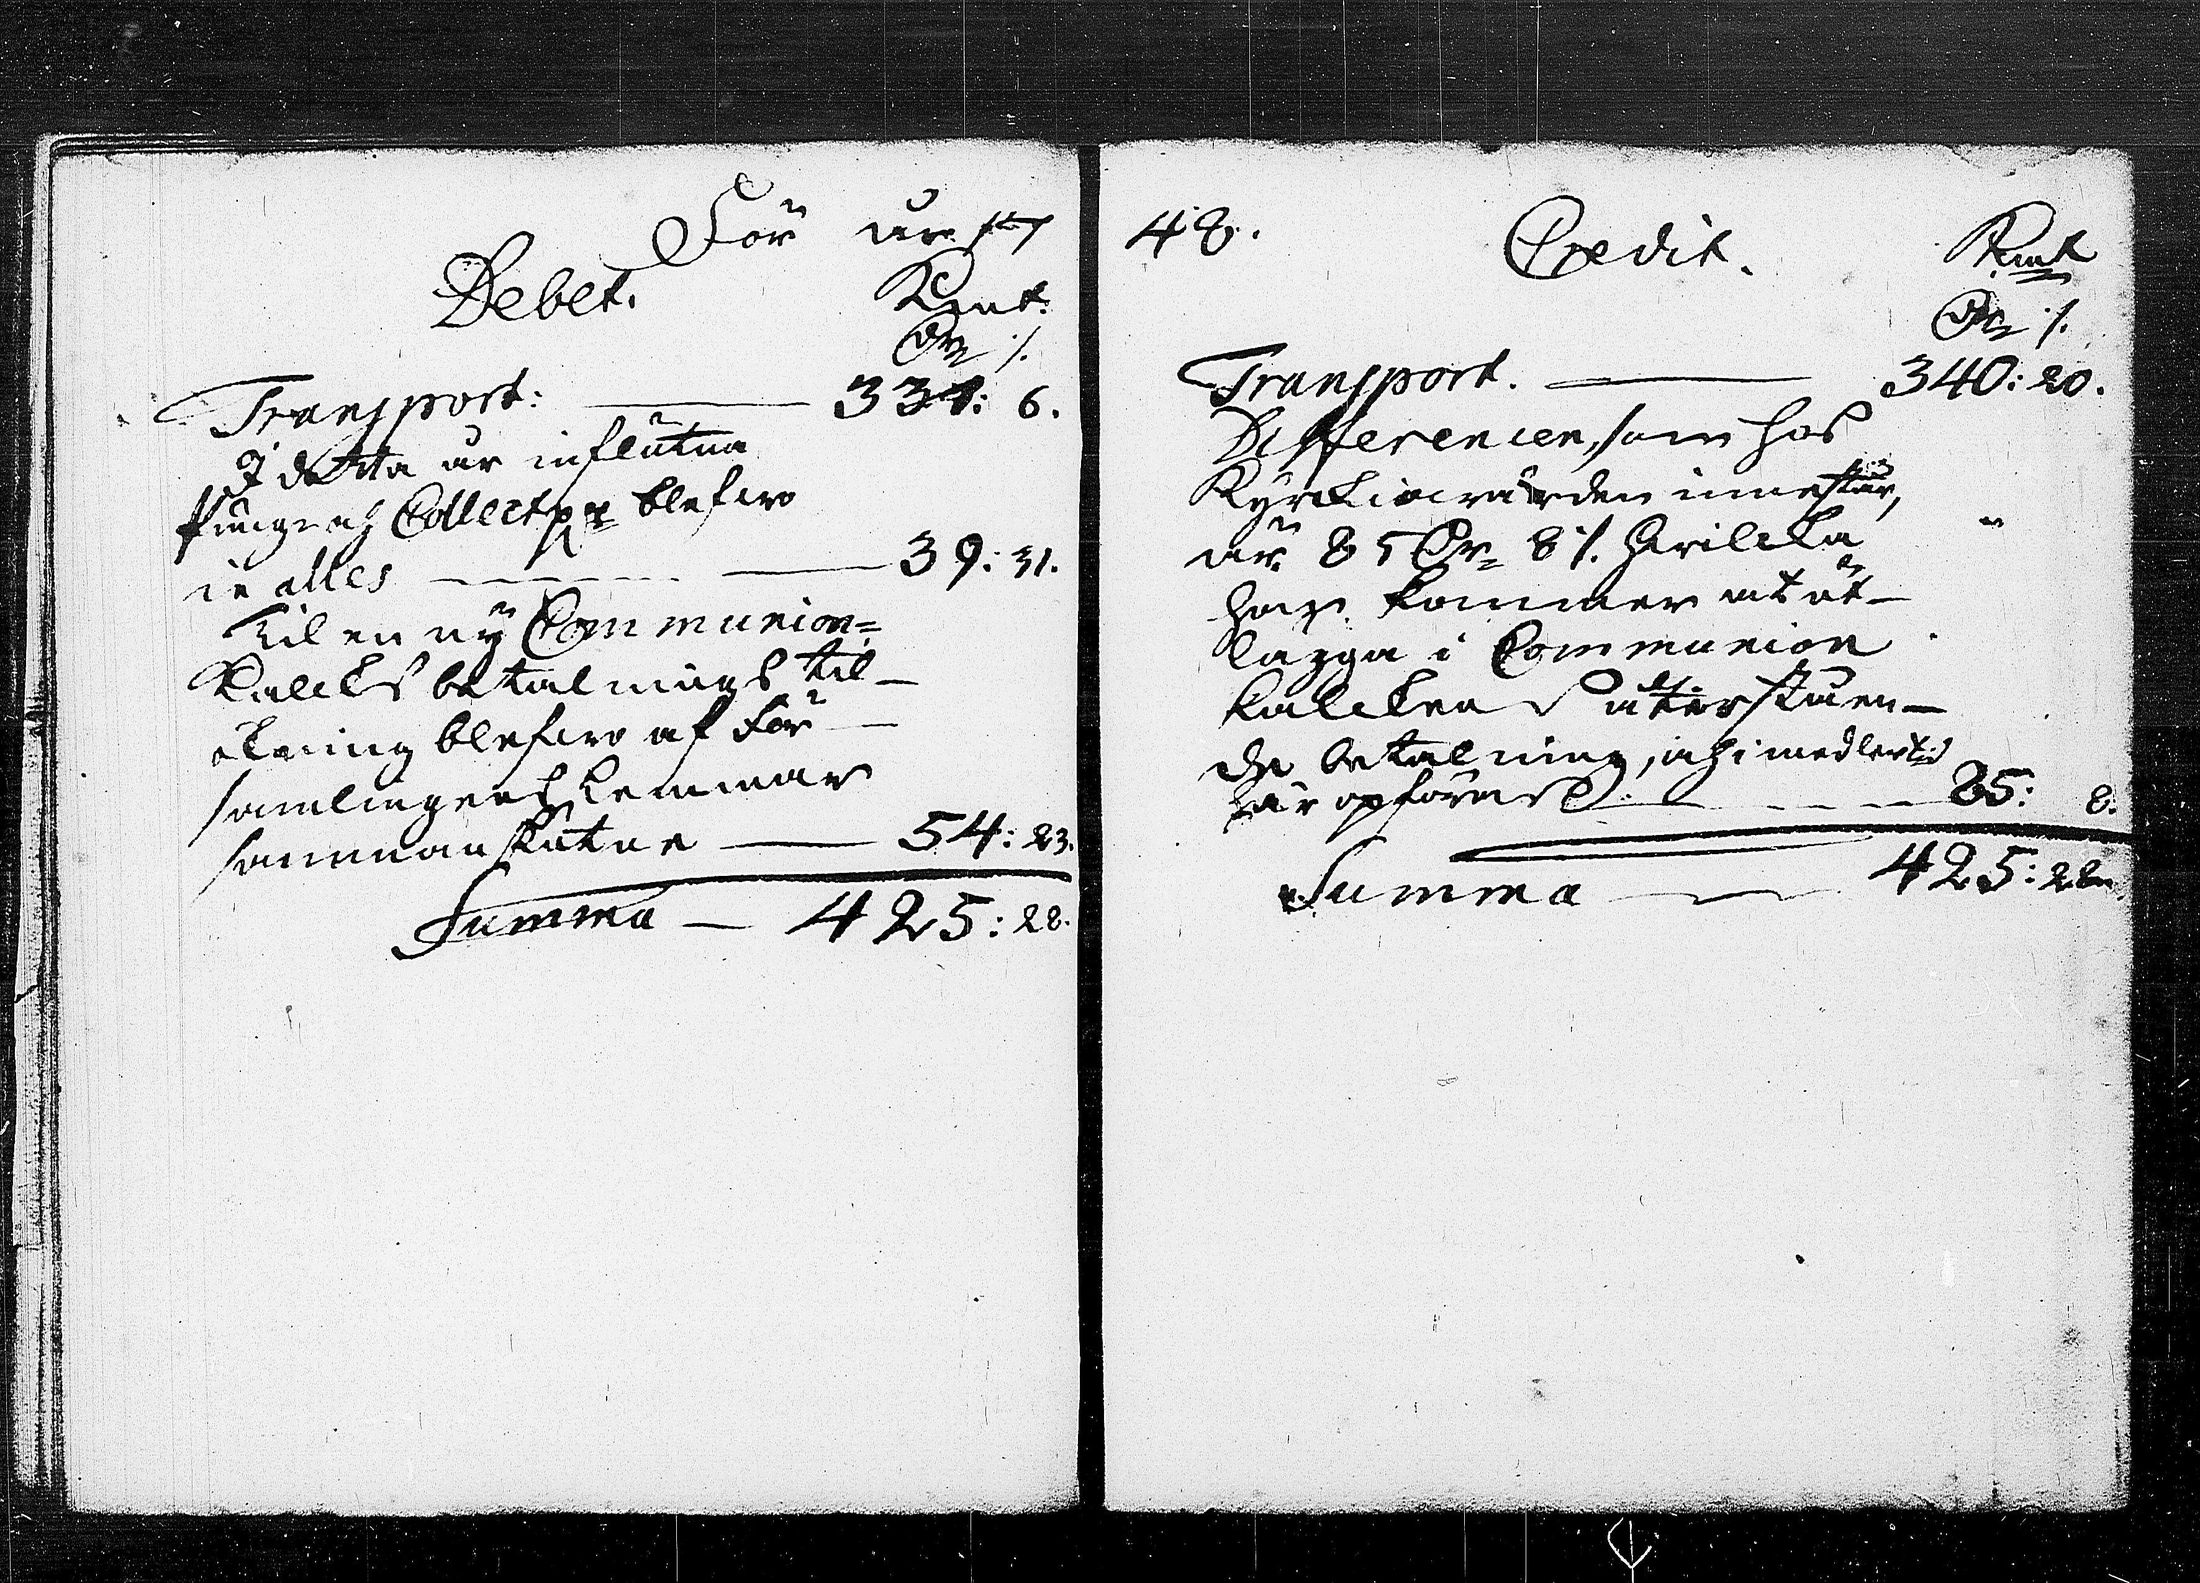 För år 17
Debet. Kmt:
Dr ./.
Transport: 331: 6.
I detta år influtna
Pungar och Collecter blefwo
in alles 39: 31.
Til en ny Communion=
Kalcks betalnings til-
ökning blefwo af För-
samlingens Lemmar
sammanskutne 54: 23.
Summa 425: 28.
48.
Credit. Kmt
Dr ./.
Transport. 340: 20.
Differencen, som hos
Kyrkiowärden innestår,
är 85 Dr 8 ./. hwilcka
kommer at ut-
lägga i Communion
kalckens återståen-
de betalning, och imedlertid
här opföras 85: 8.
Summa 425: 28